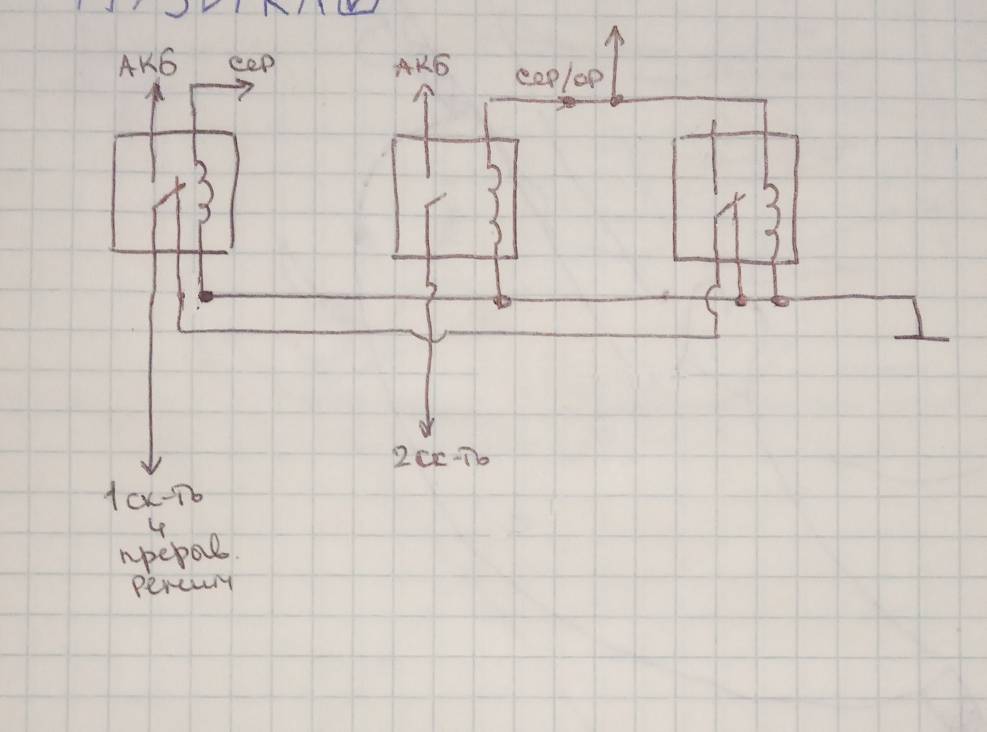 АКБ
сер
АКБ
сер/ор
2 ск-ть
1 ск-ть
и
прерыв.
режим